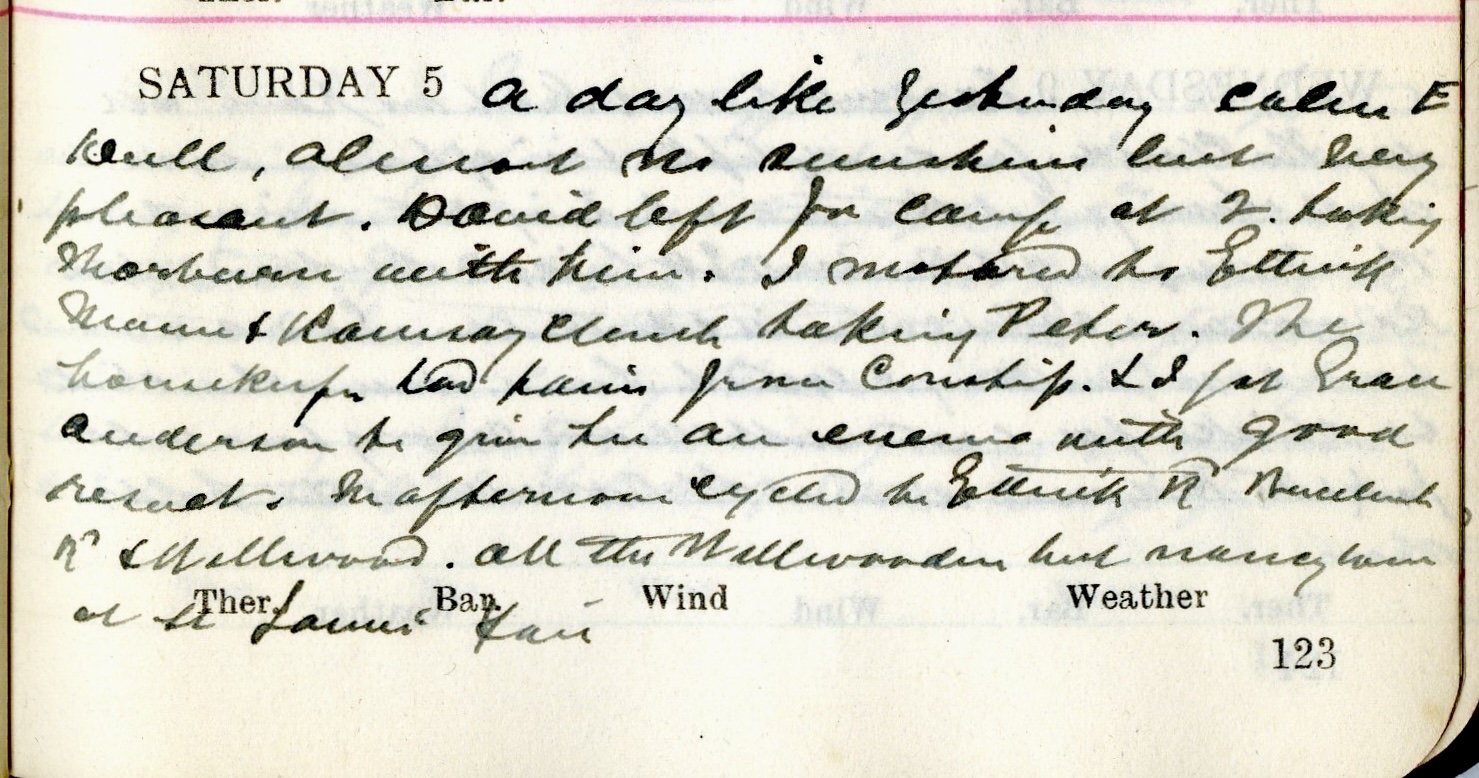 SATURDAY 5 A day like yesterday calm &
dull, almost no sunshine but very
pleasant. David left for camp at 2. taking
Thorburn with him. I motored to Ettrick
Manse & Ramsay Cleuch taking Peter. The
housekeeper had pain from Constip. & I got
Anderson to give her an enema with good
result. In afternoon cycled to Ettrick R Buccleuch
R & Wellwood. All the Wellwooders but Nancy were
at St Fair
Ther. Bar. Wind Weather
123